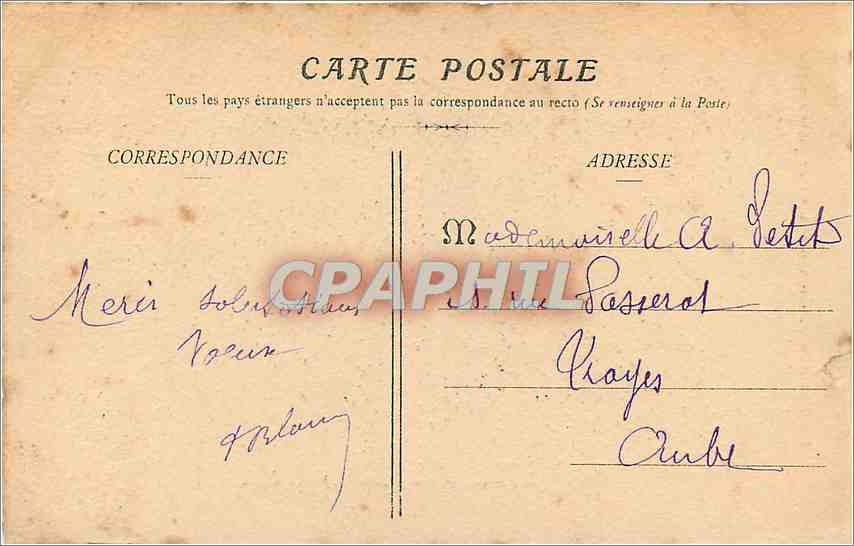 CARTE POSTALE
Tous les pays étrangers n'acceptent pas la correspondance au recto (Se renseigner à la Poste)
CORRESPONDANCE
ADRESSE
Merci salutations
Voeux
Mademoiselle A. Petit
rue Passerat
Troyes
Aube
CPAPHIL